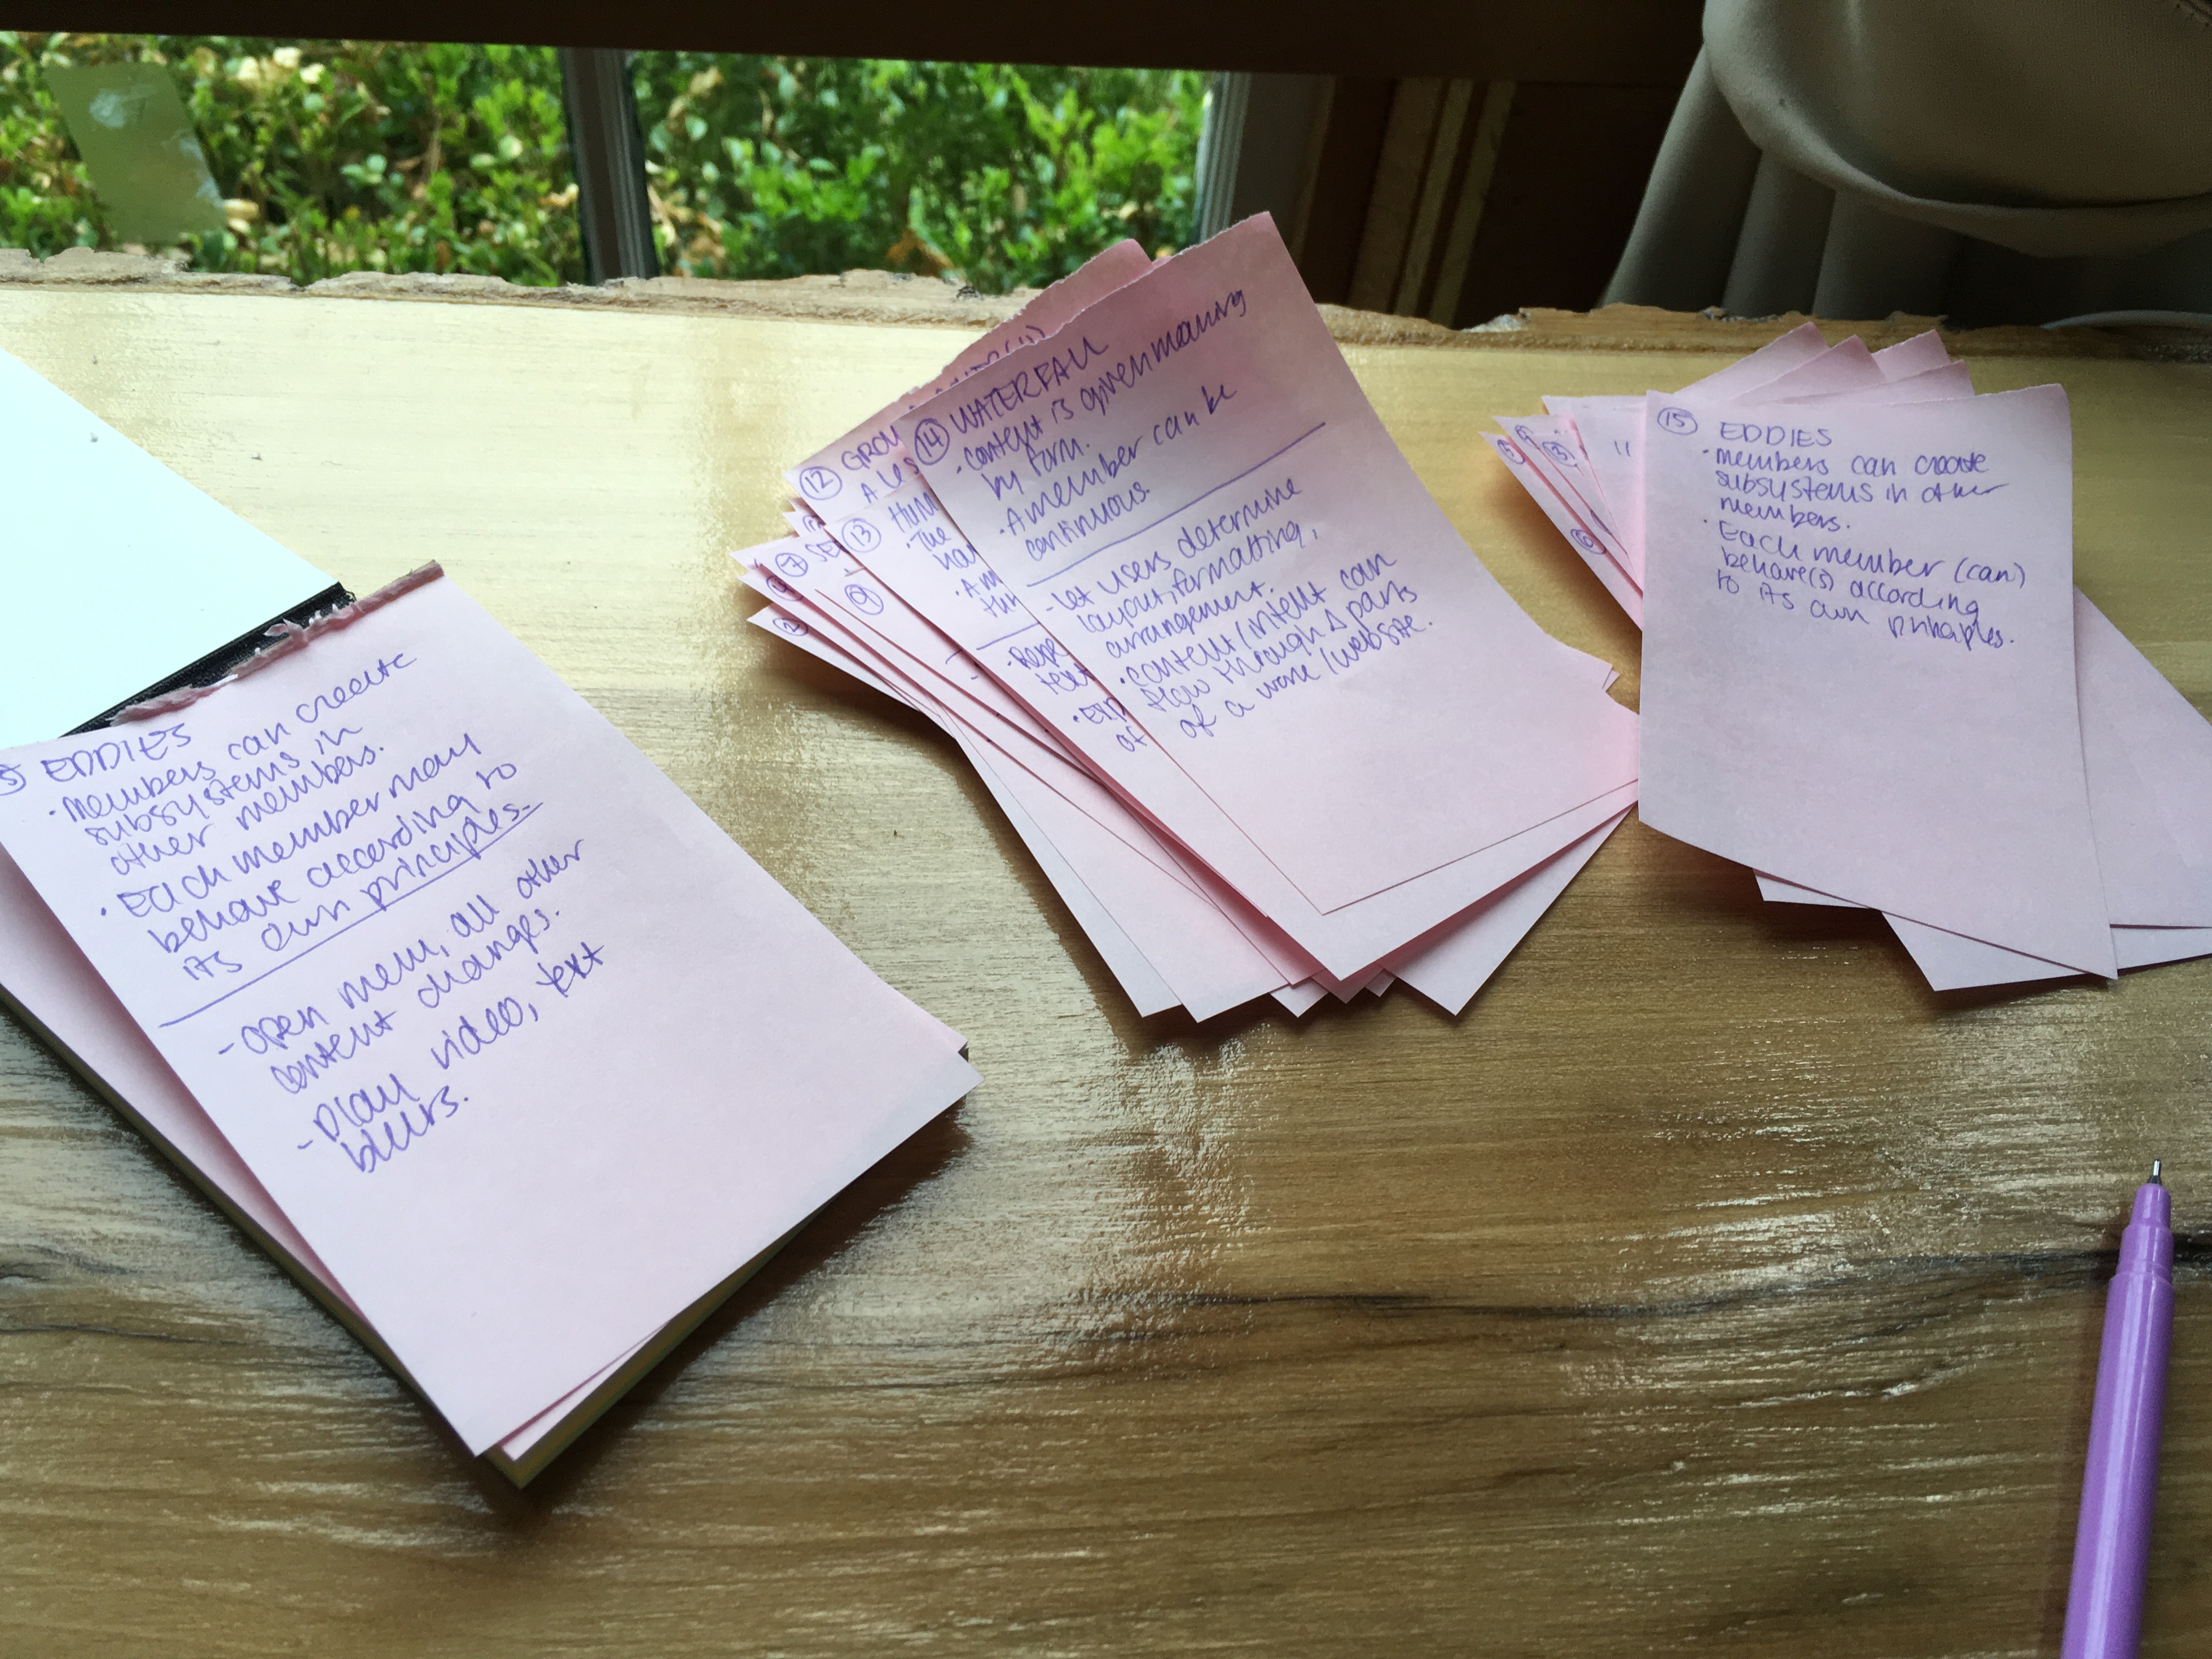 EDDIES
· members can create
subsystems in
other members.
· Each member may
behave according to
its own principles.
- open menu, all other
content changes.
- play video, text
blurs.
12
A
7
9
2
13
· The
· Am
text
of
14 WATERFALL
· content is given meaning
by form.
· A member can be
continuous.
- let users determine
layout, formatting,
arrangement.
· content/intent can
flow through Δ parts
of a work/website.
6
11
15 EDDIES
· members can create
subsystems in other
members.
· Each member (can)
behave(s) according
to its own principles.